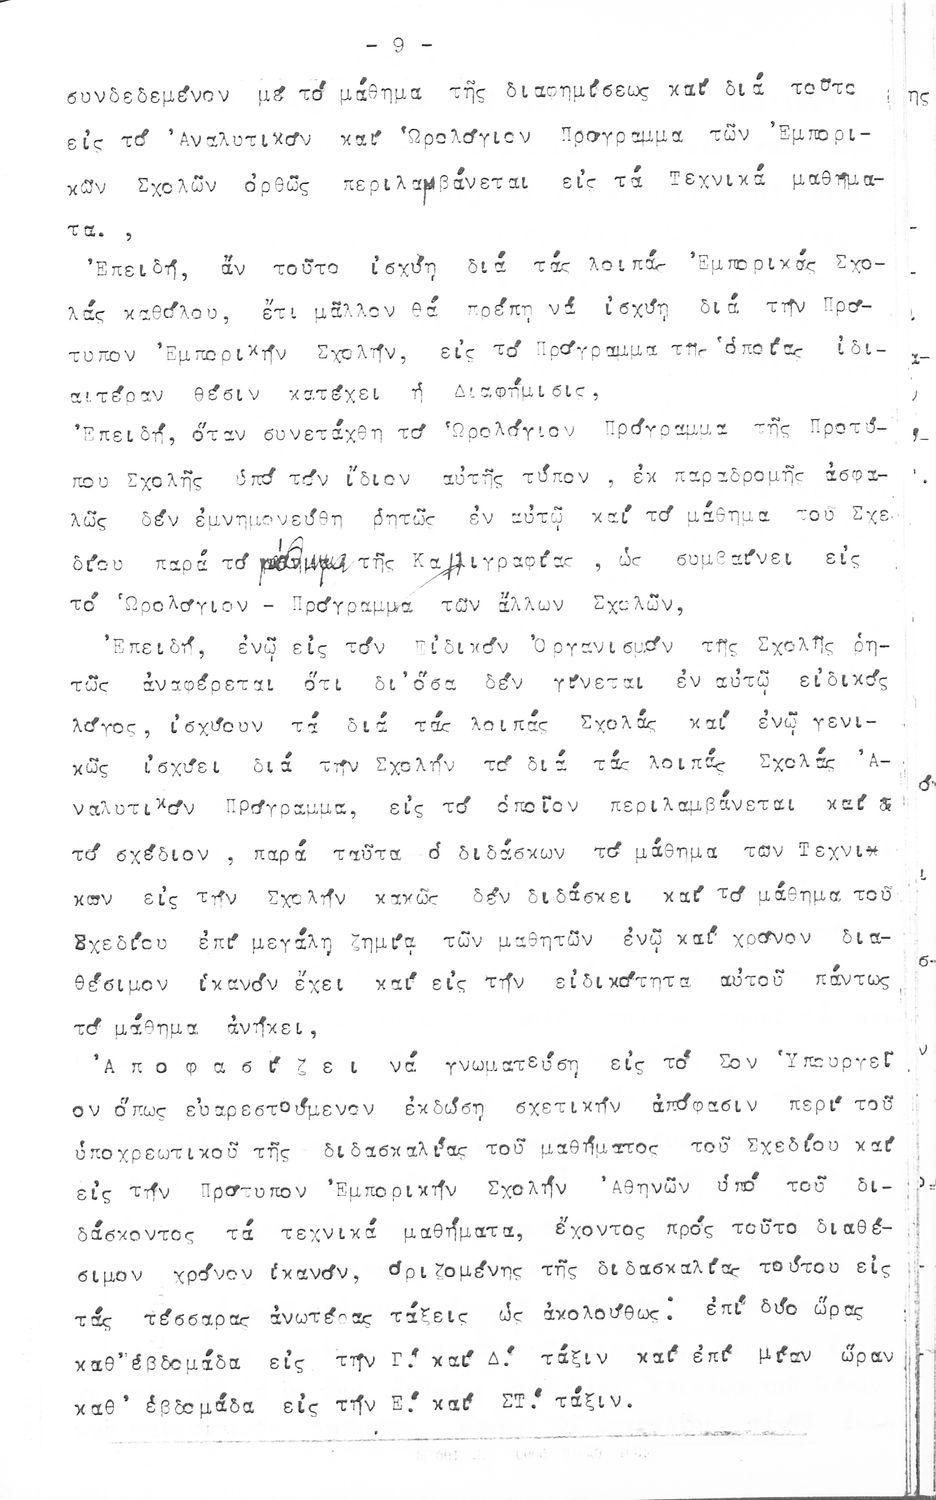 - 9 -
συνδεδεμένον μέ τό μάθημα τῆς διαφημίσεως καί διά τοῦτο
εἰς τό Ἀναλυτικόν καί Ὡρολόγιον Πρόγραμμα τῶν Ἐμπορι-
κῶν Σχολῶν ὀρθῶς περιλαμβάνεται εἰς τά Τεχνικά μαθήμα-
τα. ,
Ἐπειδή, ἄν τοῦτο ἰσχύῃ διά τάς λοιπάς Ἐμπορικάς Σχο-
λάς καθόλου, ἔτι μᾶλλον θά πρέπῃ νά ἰσχύῃ διά τήν Πρό-
τυπον Ἐμπορικήν Σχολήν, εἰς τό Πρόγραμμα τῆς ὁποίας ἰδι-
αιτέραν θέσιν κατέχει ἡ Διαφήμισις,
Ἐπειδή, ὅταν συνετάχθη τό Ὡρολόγιον Πρόγραμμα τῆς Προτύ-
που Σχολῆς ὑπό τόν ἴδιον αὐτῆς τύπον , ἐκ παραδρομῆς ἀσφα-
λῶς δέν ἐμνημονεύθη ῥητῶς ἐν αὐτῷ καί τό μάθημα τοῦ Σχε-
δίου παρά τό μάθημα τῆς Καλλιγραφίας , ὡς συμβαίνει εἰς
τό Ὡρολόγιον - Πρόγραμμα τῶν ἄλλων Σχολῶν,
Ἐπειδή, ἐνῷ εἰς τόν Εἰδικόν Ὀργανισμόν τῆς Σχολῆς ῥη-
τῶς ἀναφέρεται ὅτι δι' ὅσα δέν γίνεται ἐν αὐτῷ εἰδικός
λόγος, ἰσχύουν τά διά τάς λοιπάς Σχολάς καί ἐνῷ γενι-
κῶς ἰσχύει διά τήν Σχολήν τό διά τάς λοιπάς Σχολάς Ἀ-
ναλυτικόν Πρόγραμμα, εἰς τό ὁποῖον περιλαμβάνεται καί
τό σχέδιον , παρά ταῦτα ὁ διδάσκων τό μάθημα των Τεχνικ
κων εἰς τήν Σχολήν κακῶς δέν διδάσκει καί τό μάθημα τοῦ
Σχεδίου ἐπί μεγάλῃ ζημίᾳ τῶν μαθητῶν ἐνῷ καί χρόνον δια-
θέσιμον ἱκανόν ἔχει καί εἰς τήν εἰδικότητα αὐτοῦ πάντως
τό μάθημα ἀνήκει,
Ἀ π ο φ α σ ί ζ ε ι νά γνωματεύσῃ εἰς τό Σον Ὑπουργεῖ
ον ὅπως εὐαρεστούμενον ἐκδώσῃ σχετικήν ἀπόφασιν περί τοῦ
ὑποχρεωτικοῦ τῆς διδασκαλίας τοῦ μαθήματος τοῦ Σχεδίου καί
εἰς τήν Πρότυπον Ἐμπορικήν Σχολήν Ἀθηνῶν ὑπό τοῦ δι-
δάσκοντος τά τεχνικά μαθήματα, ἔχοντος πρός τοῦτο διαθέ-
σιμον χρόνον ἱκανόν, ὁριζομένης τῆς διδασκαλίας τούτου εἰς
τάς τέσσαρας ἀνωτέρας τάξεις ὡς ἀκολούθως: ἐπί δύο ὥρας
καθ' ἑβδομάδα εἰς τήν Γ.' καί Δ.' τάξιν καί ἐπί μίαν ὥραν
καθ' ἑβδομάδα εἰς τήν Ε.' καί ΣΤ.' τάξιν.